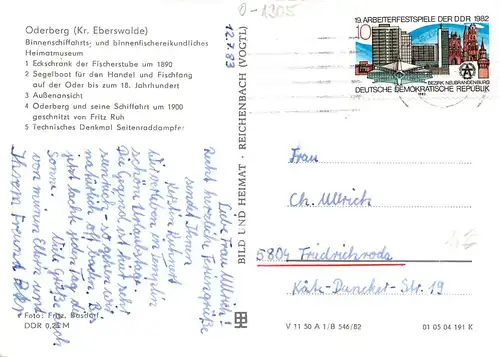 Oderberg (Kr. Eberswalde)
Binnenschiffahrts- und binnenfischereikundliches
Heimatmuseum
1 Eckschrank der Fischerstube um 1890
2 Segelboot für den Handel und Fischfang
auf der Oder bis zum 18. Jahrhundert
3 Außenansicht
4 Oderberg und seine Schiffahrt um 1900
geschnitzt von Fritz Ruh
5 Technisches Denkmal Seitenraddampfer
12.7.83
Liebe Frau Ullrich!
Recht herzliche Feriengrüße
sendet Ihnen
Wir haben
schöne Urlaubstage.
Die Gegend ist
natürlich oft baden. Bis
jetzt lacht jeden Tag die
Sonne. Viele Grüße auch
von meinen Eltern und
Ihrem Freund Peter
Foto: Fritz, Basdorf
DDR 0,25 M
BILD UND HEIMAT · REICHENBACH (VOGTL)
0-1205
19. ARBEITERFESTSPIELE DER DDR 1982
10
BEZIRK NEUBRANDENBURG
DEUTSCHE DEMOKRATISCHE REPUBLIK
1982
Frau
Ch. Ullrich
5804 Friedrichroda
Käte-Duncker-Str. 19
V 11 50 A 1/B 546/82
01 05 04 191 K